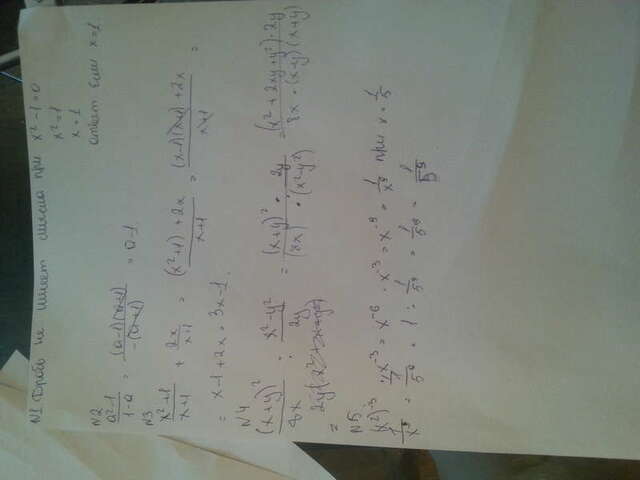 N1 Дробь не имеет смысла при x² - 1 = 0
x² = 1
x = 1
ответ если x = 1.
N2
a² - 1 / 1 - a = (a-1)(a+1) / -(a+1) = a - 1.
N3
x² + 1 / x + 1 + 2x / x + 1 = (x² + 1) + 2x / x + 1 = (x-1)(x+1) + 2x / x + 1 =
= x - 1 + 2x = 3x - 1.
N4
(x+y)² / 8x : x² - y² / 2y = (x+y)² · 2y / (8x) · (x² - y²) = (x² + 2xy + y²) · 2y / 8x · (x-y)(x+y)
= 2y(
N5
(x²)⁻³ · x⁻³ = x⁻⁶ · x⁻³ = x⁻⁹ = 1 / x⁹ при x = 1 / 5
1 / x⁹ = 1 / 5⁹ = 1 : 1 / 5⁹ = 1 / 5⁹ = 1 / 5⁹